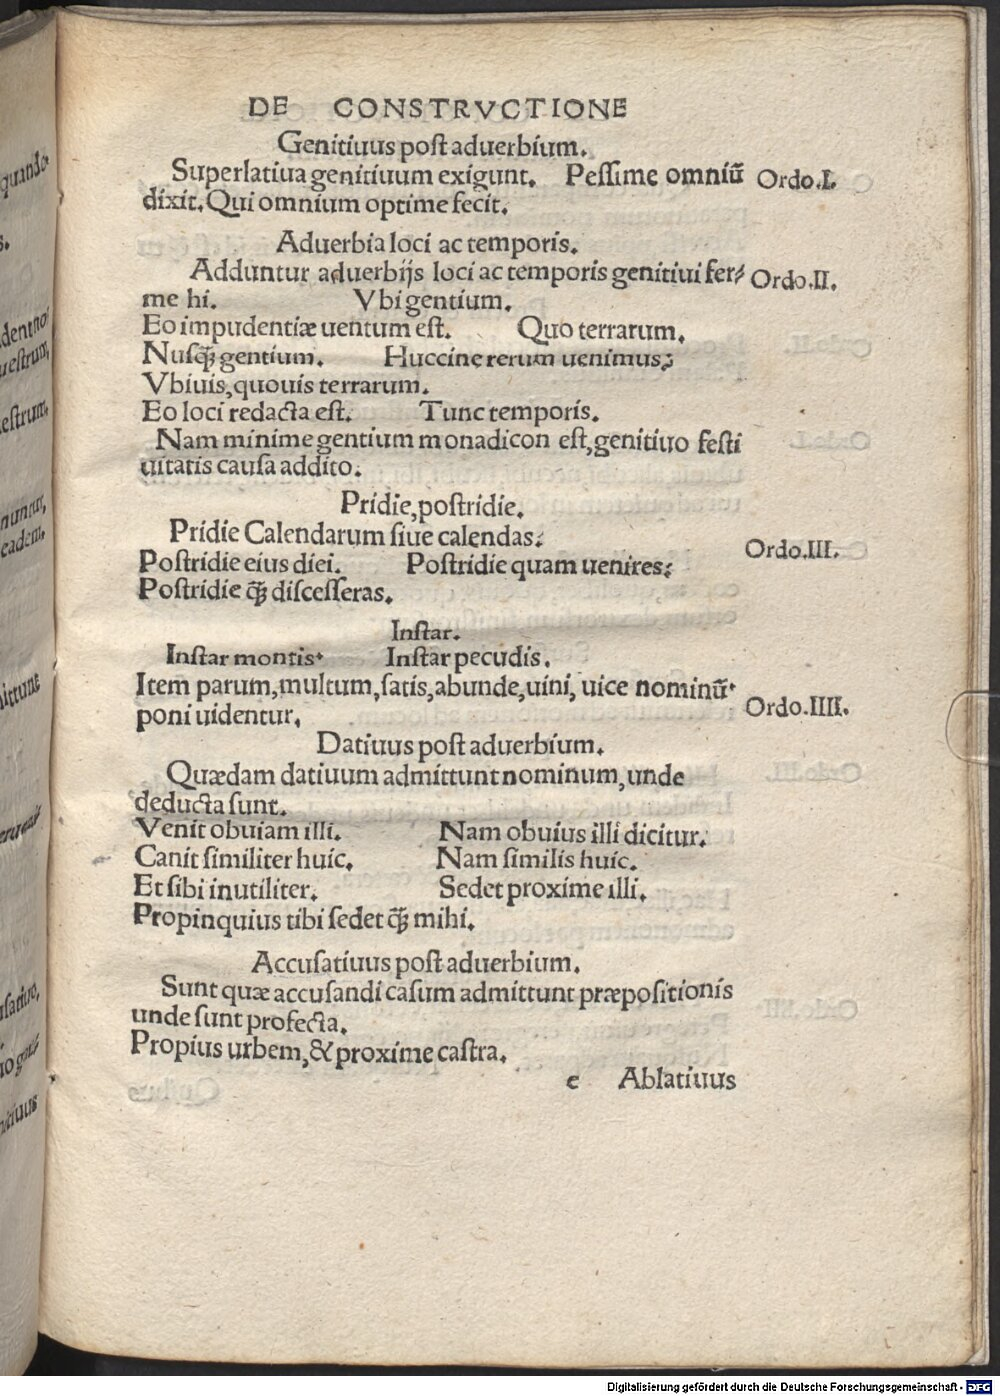 DE CONSTRVCTIONE
Genitiuus post aduerbium.
Superlatiua genitiuum exigunt. Pessime omniū Ordo.I.
dixit. Qui omnium optime fecit.
Aduerbia loci ac temporis.
Adduntur aduerbijs loci ac temporis genitiui fer⸗ Ordo.II.
me hi. Vbi gentium.
Eo impudentiæ uentum est. Quo terrarum.
Nusꝙ̃ gentium. Huccine rerum uenimus;
Vbiuis, quouis terrarum.
Eo loci redacta est. Tunc temporis.
Nam minime gentium monadicon est, genitiuo festi
uitatis causa addito.
Pridie, postridie.
Pridie Calendarum siue calendas: Ordo.III.
Postridie eius diei. Postridie quam uenires:
Postridie ꝙ̃ discesseras.
Instar.
Instar montis. Instar pecudis.
Item parum, multum, satis, abunde, uini, uice nominū. Ordo.IIII.
poni uidentur.
Datiuus post aduerbium.
Quædam datiuum admittunt nominum, unde
deducta sunt.
Venit obuiam illi. Nam obuius illi dicitur.
Canit similiter huic. Nam similis huic.
Et sibi inutiliter. Sedet proxime illi.
Propinquius tibi sedet ꝙ̃ mihi.
Accusatiuus post aduerbium.
Sunt quæ accusandi casum admittunt præpositionis
unde sunt profecta.
Propius urbem, & proxime castra.
e Ablatiuus
Digitalisierung gefördert durch die Deutsche Forschungsgemeinschaft - DFG